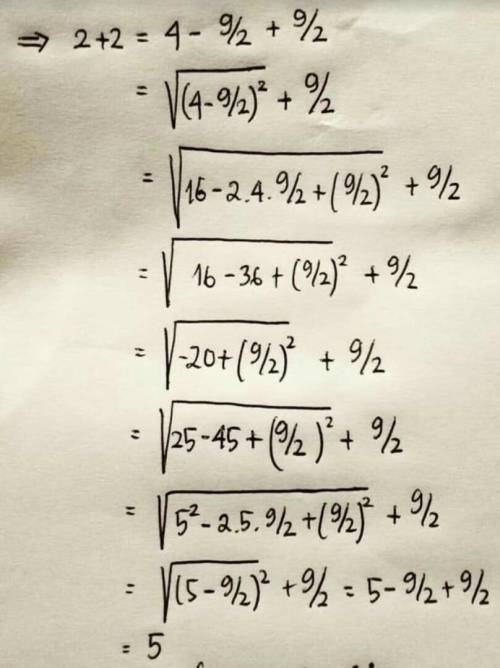 ⇒ 2+2 = 4 - 9/2 + 9/2
= √(4-9/2)² + 9/2
= √16-2.4.9/2+(9/2)² + 9/2
= √16-36+(9/2)² + 9/2
= √-20+(9/2)² + 9/2
= √25-45+(9/2)² + 9/2
= √5²-2.5.9/2+(9/2)² + 9/2
= √(5-9/2)² + 9/2 = 5-9/2+9/2
= 5